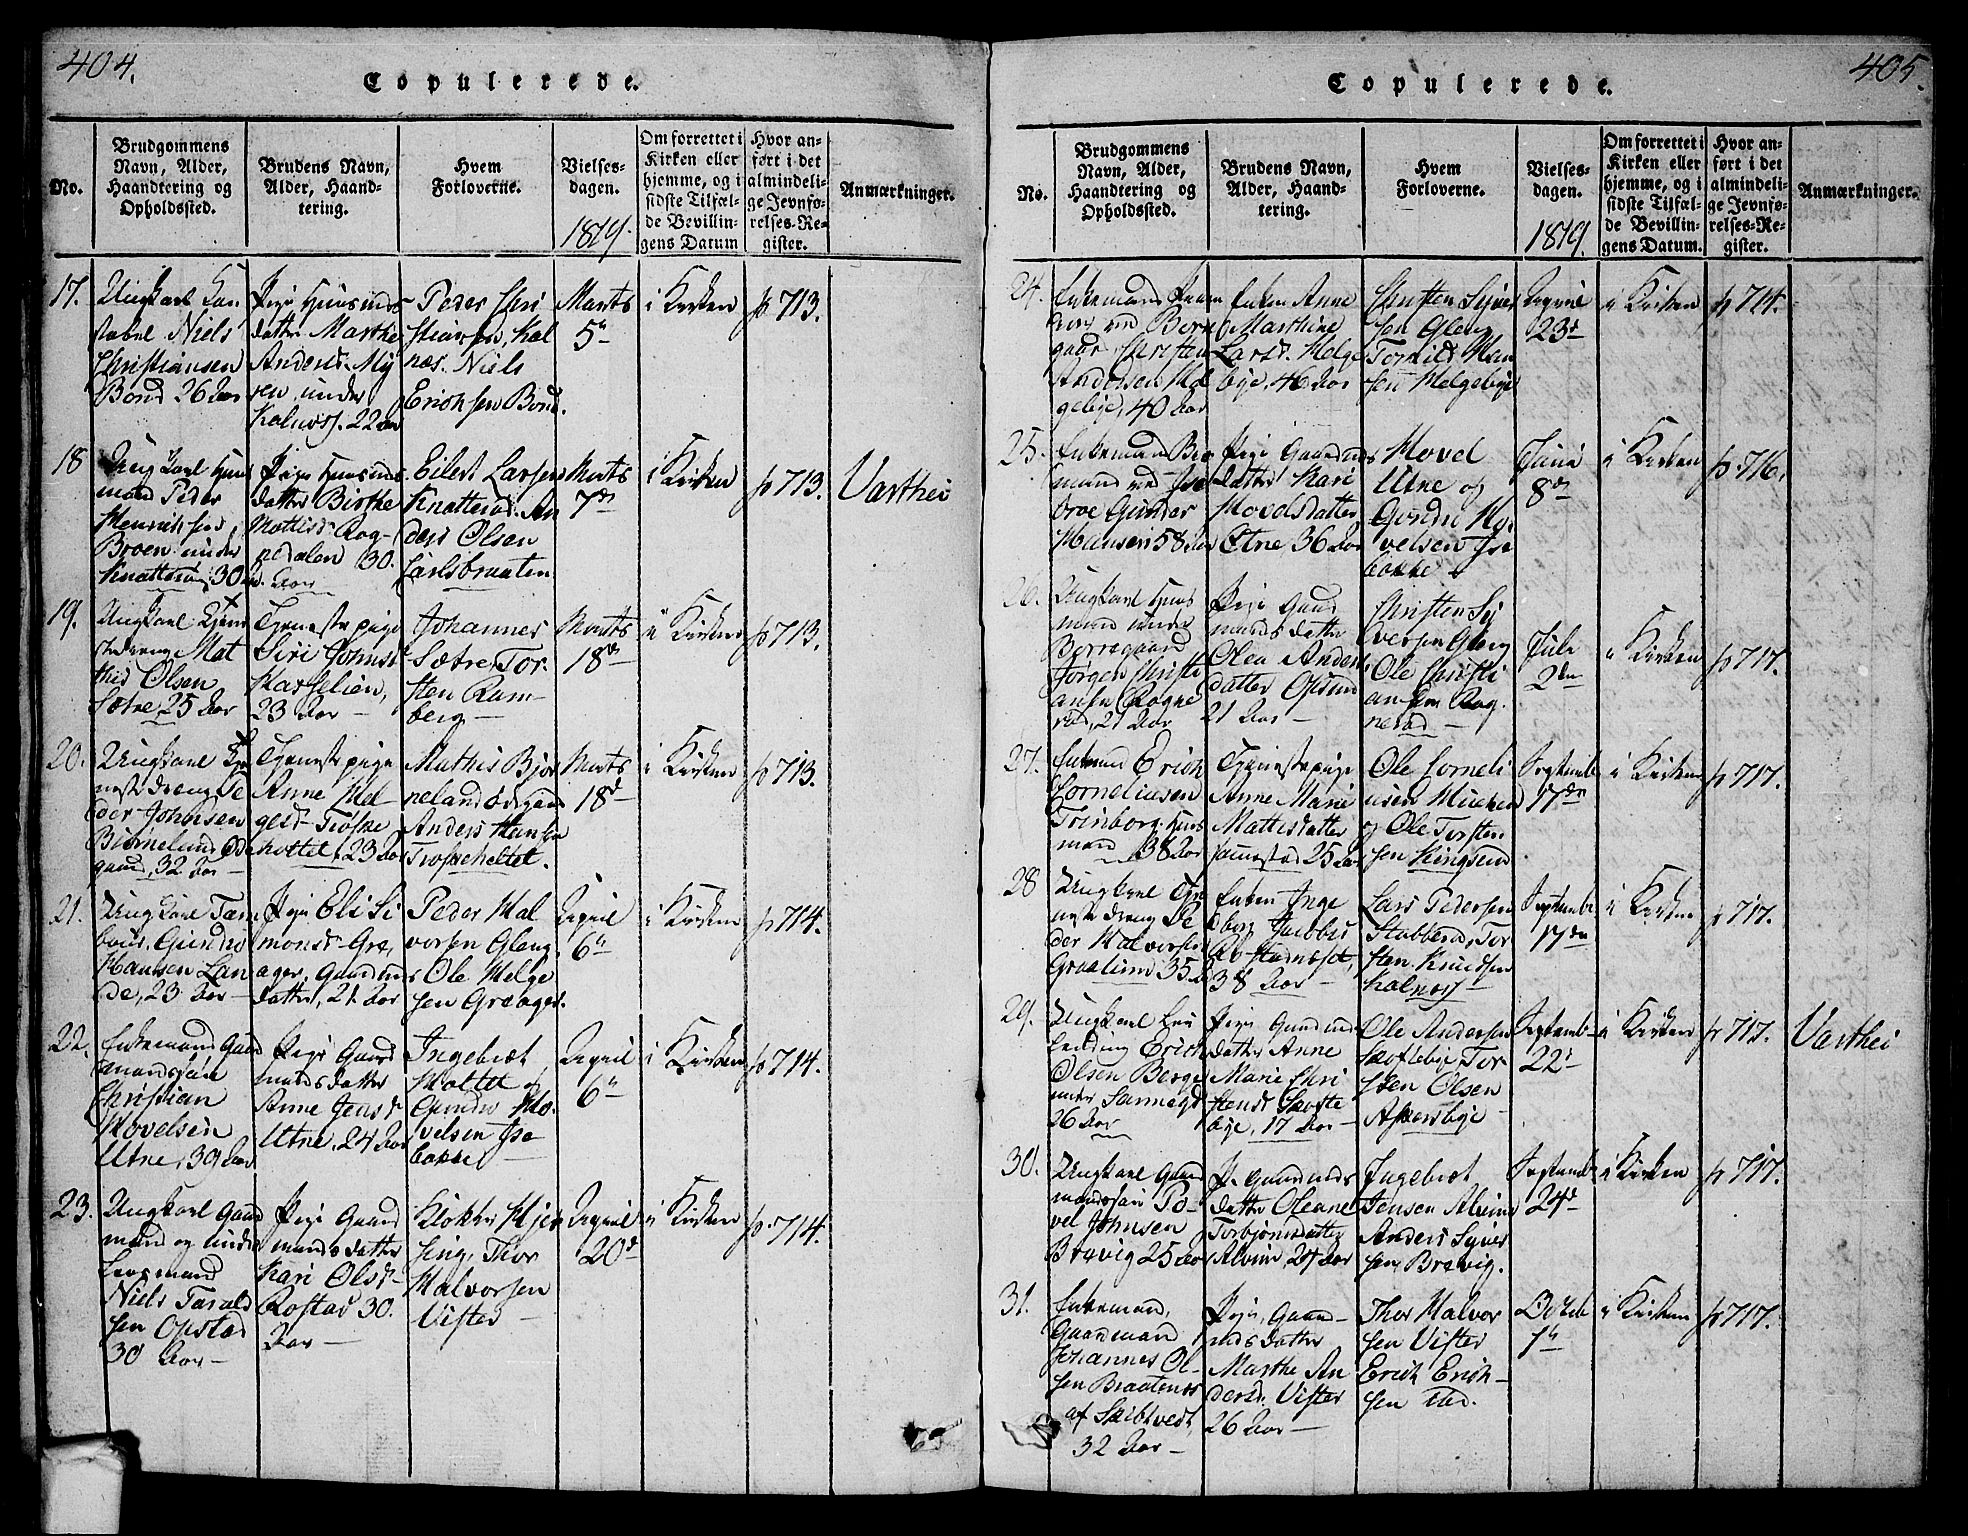 404.
Copulerede.
No.
Brudgommens
Navn, Alder,
Haandtering og
Opholdssted.
Brudens Navn,
Alder, Haand-
tering.
Hvem
Forloverne.
Vielses-
dagen.
1819.
Om forrettet i
Kirken eller
hjemme, og i
sidste Tilfæl-
de Bevillin-
gens Datum
Hvor an-
ført i det
almindeli-
ge Jevnfø-
relses-Re-
gister.
Anmærkninger.
17.
Ungkarl
Niels
Christiansen
Bond 26 Aar
Pige Huusmds
datter Marthe
Andersd. My
ren, under
Kalnæss. 22 Aar
Peder Chri
stiansen, Kal
næs. Niels
Erichsen Bond.
Marts
5
i Kirken
p 713.
18
Ungkarl Huus
mand Peder
Henrichsen
Broen under
Knatterø, 30
Pige Huusmds
datter Birthe
Mattisd. Rog-
nedalen 30.
Aar
Eilert Larsen
Knatterød. An
ders Olsen
Carlsbraaten
Marts
7de
i Kirken
p 713.
Varthei
19.
Ungkarl Tjene
stedreng Mat
this Olsen
Sætre, 25 Aar
Tjenestepige
Siri Johnsd.
Karselien,
23 Aar
Johannes
Sætre, Tor.
sten Ram-
berg
Marts
18de
i Kirken
p 713.
20.
Ungkarl Tje
nestedreng Pe
der Johnsen
Biørneland Øde
gaard, 32 Aar
Tjenestepige
Anne Hel-
gesd. Trøske
holtet, 23 Aar
Mathis Bjør
neland ødegaard
Anders Hansen
Troskeholtet.
Marts
18d
i Kirken
p 713.
21.
Ungkarl Tam
bour, Gundro
Hansen Lan
de, 23 Aar
Pige Eli Si
monsd. Græ,
ager, Gaardmds
datter, 21 Aar
Peder Hal
vorsen Gleng
Ole Helge
sen Græager.
April
6
i Kirken
p 714.
22.
Enkemand Gaard
mandssøn
Christian
Hovelsen
Utne, 39 Aar
Pige Gaard
mands datter
Anne Jensd.
Utne, 24 Aar
Ingebret
Holtet og
Gundro Ho.
velsen Ise
bakke
April
6
i Kirken
p 714.
23.
Ungkarl Gaard
mand og under
Lensmand
Niels Tarald
sen Opstad
30 Aar
Pige Gaard
mands datter
Kari Olsd.
Rostad 30.
Aar
Klokker Hjer
sing, Thor
Halvorsen
Vister
April
20d
i Kirken
p. 714.
405.
Copulerede.
No.
Brudgommens
Navn, Alder,
Haandtering og
Opholdssted.
Brudens Navn,
Alder, Haand-
tering.
Hvem
Forloverne.
Vielses-
dagen.
1819.
Om forrettet i
Kirken eller
hjemme, og i
sidste Tilfæl-
de Bevillin-
gens Datum.
Hvor an-
ført i det
almindeli-
ge Jevnfø-
relses-Re-
gister.
Anmærkninger.
24.
Enkemand
ved Borre
gaar, Christen
Andersen Hel
gebye, 40 Aar
Enken Anne
Marthine
Larsd. Helge
bye, 46 Aar
Christen Syver
sen Gleng
Tornild Han
sen Helgebye
April
23d
i Kirken
p 714.
25.
Enkemand Bro
mand ved Ise
broe Gunder
Hansen 58 Aar
Pige Gaardmds
datter Kari
Hovelsdatter
Utne 36 Aar
Hovel
Utne og
Gundro Ho,
velsen Ise
bakke
Juni
8de
i Kirken
p 716.
26.
Ungkarl Huus
mand under
Borregaard
Jørgen Christi
ansen Rogne
rød, 21 Aar
Pige Gaard
mands datter
Olea Anders
datter Opsund
21 Aar
Christen Sy
versen Gleng
Ole Christi
ansen Rog.
nerød
Juli
2den
i Kirken
p 717.
27.
Enkemd Erich
Corneliusen
Trinborg Huus
mand 38 Aar
Tjenestepige
Anne Marie
Mattisdatter
25 Aar
Ole Corneli
usen
og Ole Torsten
sen Kingsrud
Septemb
17den
i Kirken
p 717.
28
Ungkarl Tje
nestedreng Pe
der Halvorsen
Graalum 35
Enken Inge
borg Jacobsd.
38 Aar
Lars Pedersen
Stubberud, Tor
sten Knudsen
Kalnæss
Septemb
17den
i Kirken
p 717.
29.
Ungkarl
Erich
Olsen Berge
under Sannesd.
26 Aar
Pige Gaardmds
datter Anne
Marie Chri
stensd. Skofte
bye, 17 Aar
Ole Andersen
Skoftebye Tor
sten Olsen
Askersbye
Septemb
22d
i Kirken
p 717.
Varthei
30.
Ungkarl Gaard
mandssøn Po-
vel Johnsen
Brevig 25 Aar
P. Gaardmds
datter Oleane
Torbjørnsdatter
Alvim, 24 Aar
Ingebret
Jensen Alvim
Anders Syver
sen, Brevig.
Septemb
24d
i Kirken
p 717.
31.
Enkemand,
Gaardmand
Johannes Ol-
sen Braatenes
af Skibtvedt,
32 Aar
Pige, Gaard-
mds datter
Marthe An
dersd. Vister
26 Aar
Thor Halvor
sen Vister
Erich Erich-
sen ibd.
Octob
1
i Kirken
p 717.